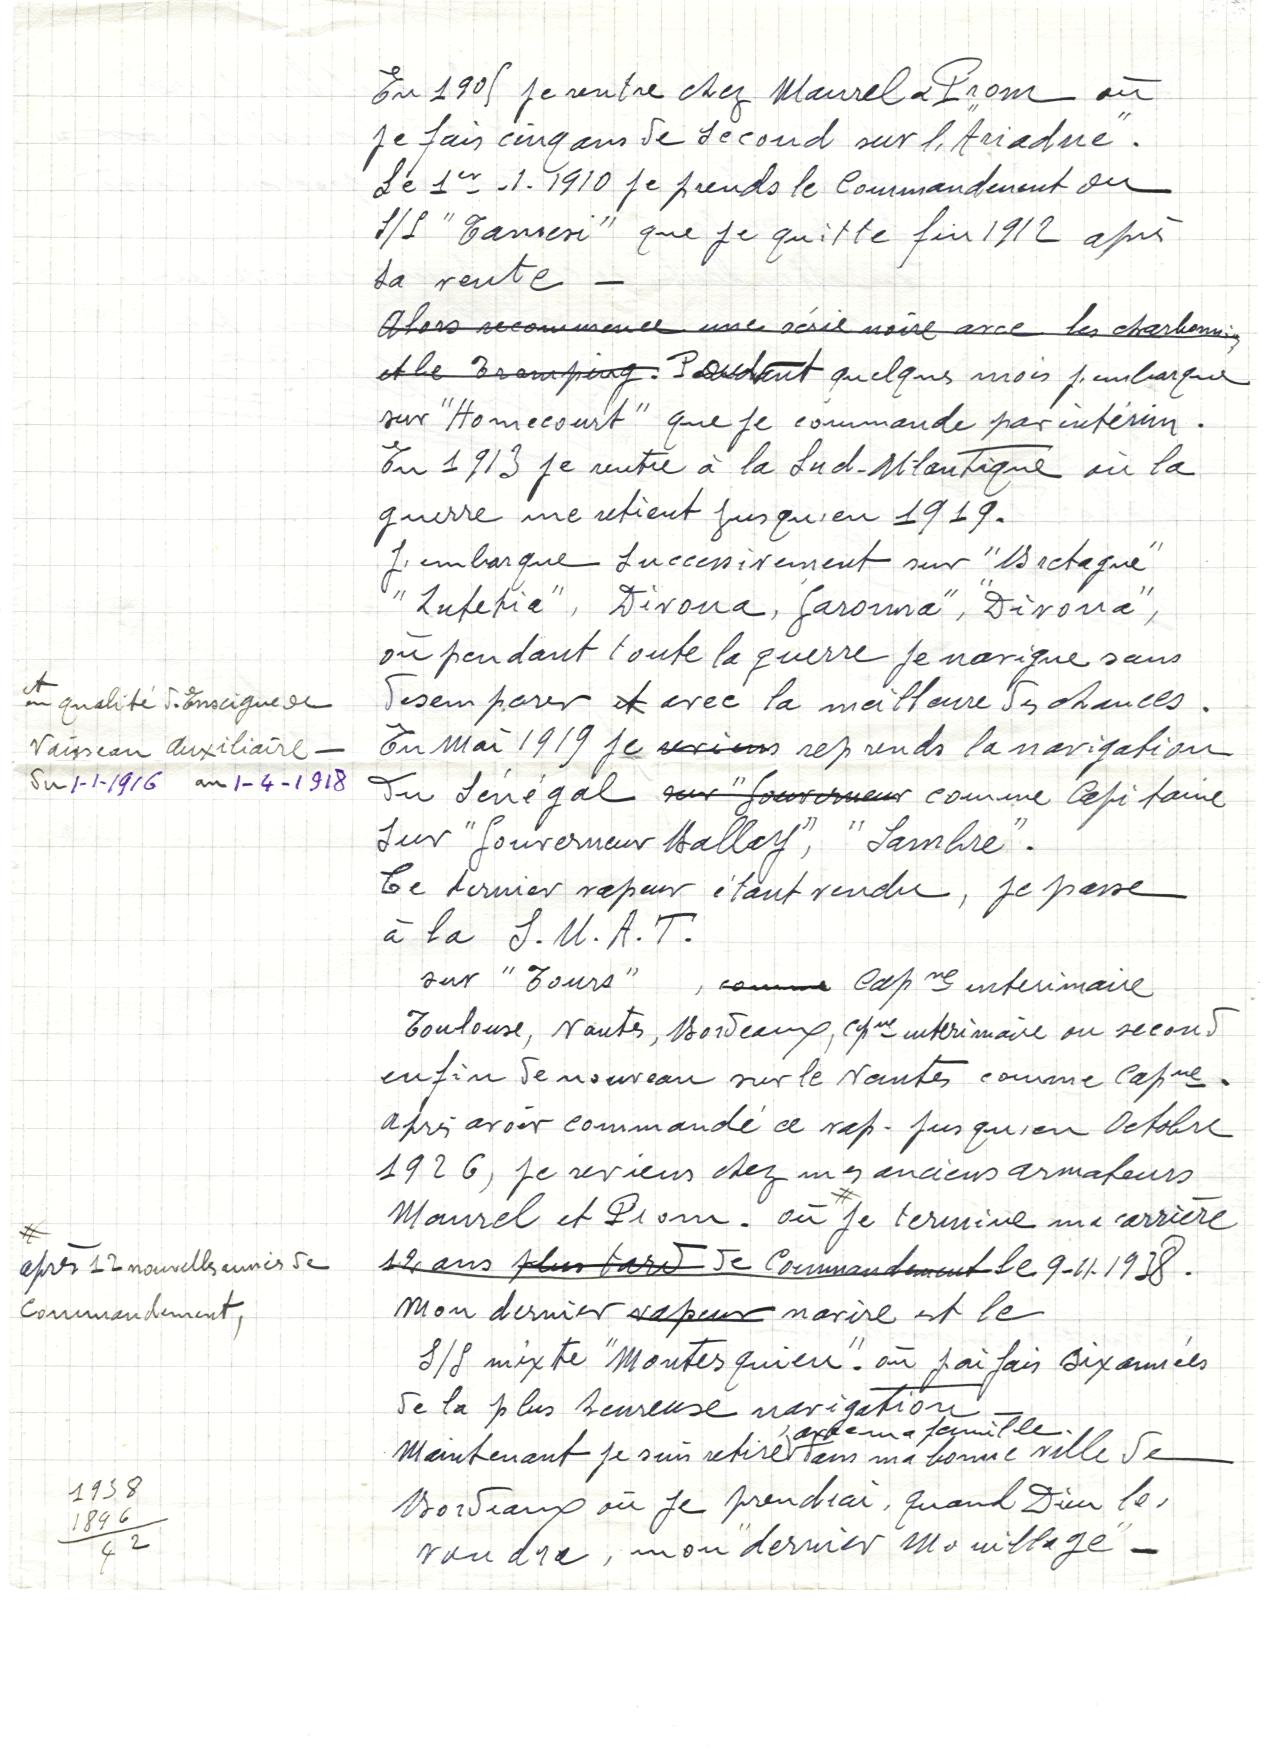 En 1905 je rentre chez Maurel & Prom où
je fais cinq ans de second sur l'"Ariadne".
Le 1er -1-1910 je prends le Commandement du
S/S "Tamesi" que je quitte fin 1912 après
sa vente -
Alors recommence une série noire avec les charbonniers
et le Tramping. Pendant quelques mois j'embarque
sur "Homecourt" que je commande par intérim.
En 1913 je rentre à la Sud-Atlantique où la
guerre me retient jusqu'en 1919.
J'embarque successivement sur "Bretagne"
"Lutetia", Divona, Garonna", "Divona",
où pendant toute la guerre je navigue sans
desemparer et avec la meilleure des chances.
et en qualité d'Enseigne de
Vaisseau Auxiliaire -
du 1-1-1916 au 1-4-1918
En Mai 1919 je reviens reprends la navigation
du Sénégal sur "Gouverneur comme Capitaine
sur "Gouverneur Ballay", "Sambre".
Ce dernier vapeur étant vendu, je passe
à la S.N.A.T.
sur "Tours", comme Capne interimaire
Toulouse, Nantes, Bordeaux, cpne interimaire ou second
enfin de nouveau sur le Nantes comme Capne.
Après avoir commandé ce vap. jusqu'en Octobre
1926, je reviens chez mes anciens armateurs
Maurel et Prom. où # je termine ma carrière
12 ans plus tard de Commandement le 9-11-1938.
#
après 12 nouvelles années de
Commandement,
Mon dernier vapeur navire est le
S/S mixte "Montesquieu". où j'ai fais six années
de la plus heureuse navigation -
, avec ma famille.
Maintenant je suis retiré dans ma bonne ville de
Bordeaux où je prendrai, quand Dieu le
voudra, mon "dernier Mouillage" -
1938
1896
42